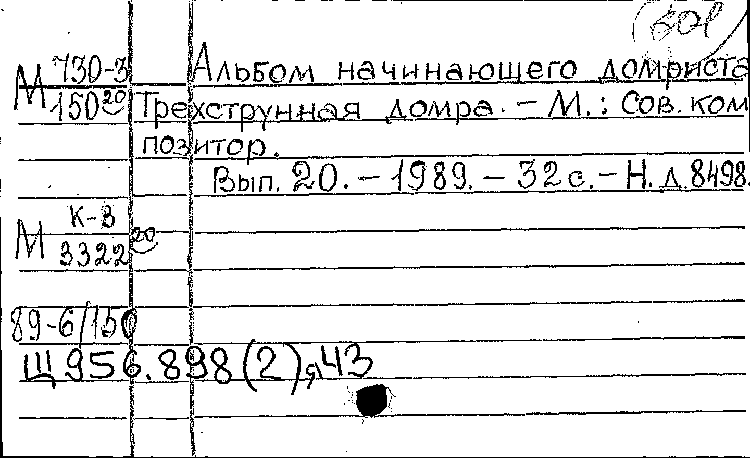 М 730-3
150 20
Альбом начинающего домриста
Трехструнная домра. – М.: Сов. ком
позитор.
Вып. 20. – 1989. – 32 с. – Н.д. 8498.
М К-3
3322 20
89-6/150
Щ 956.898(2)я43